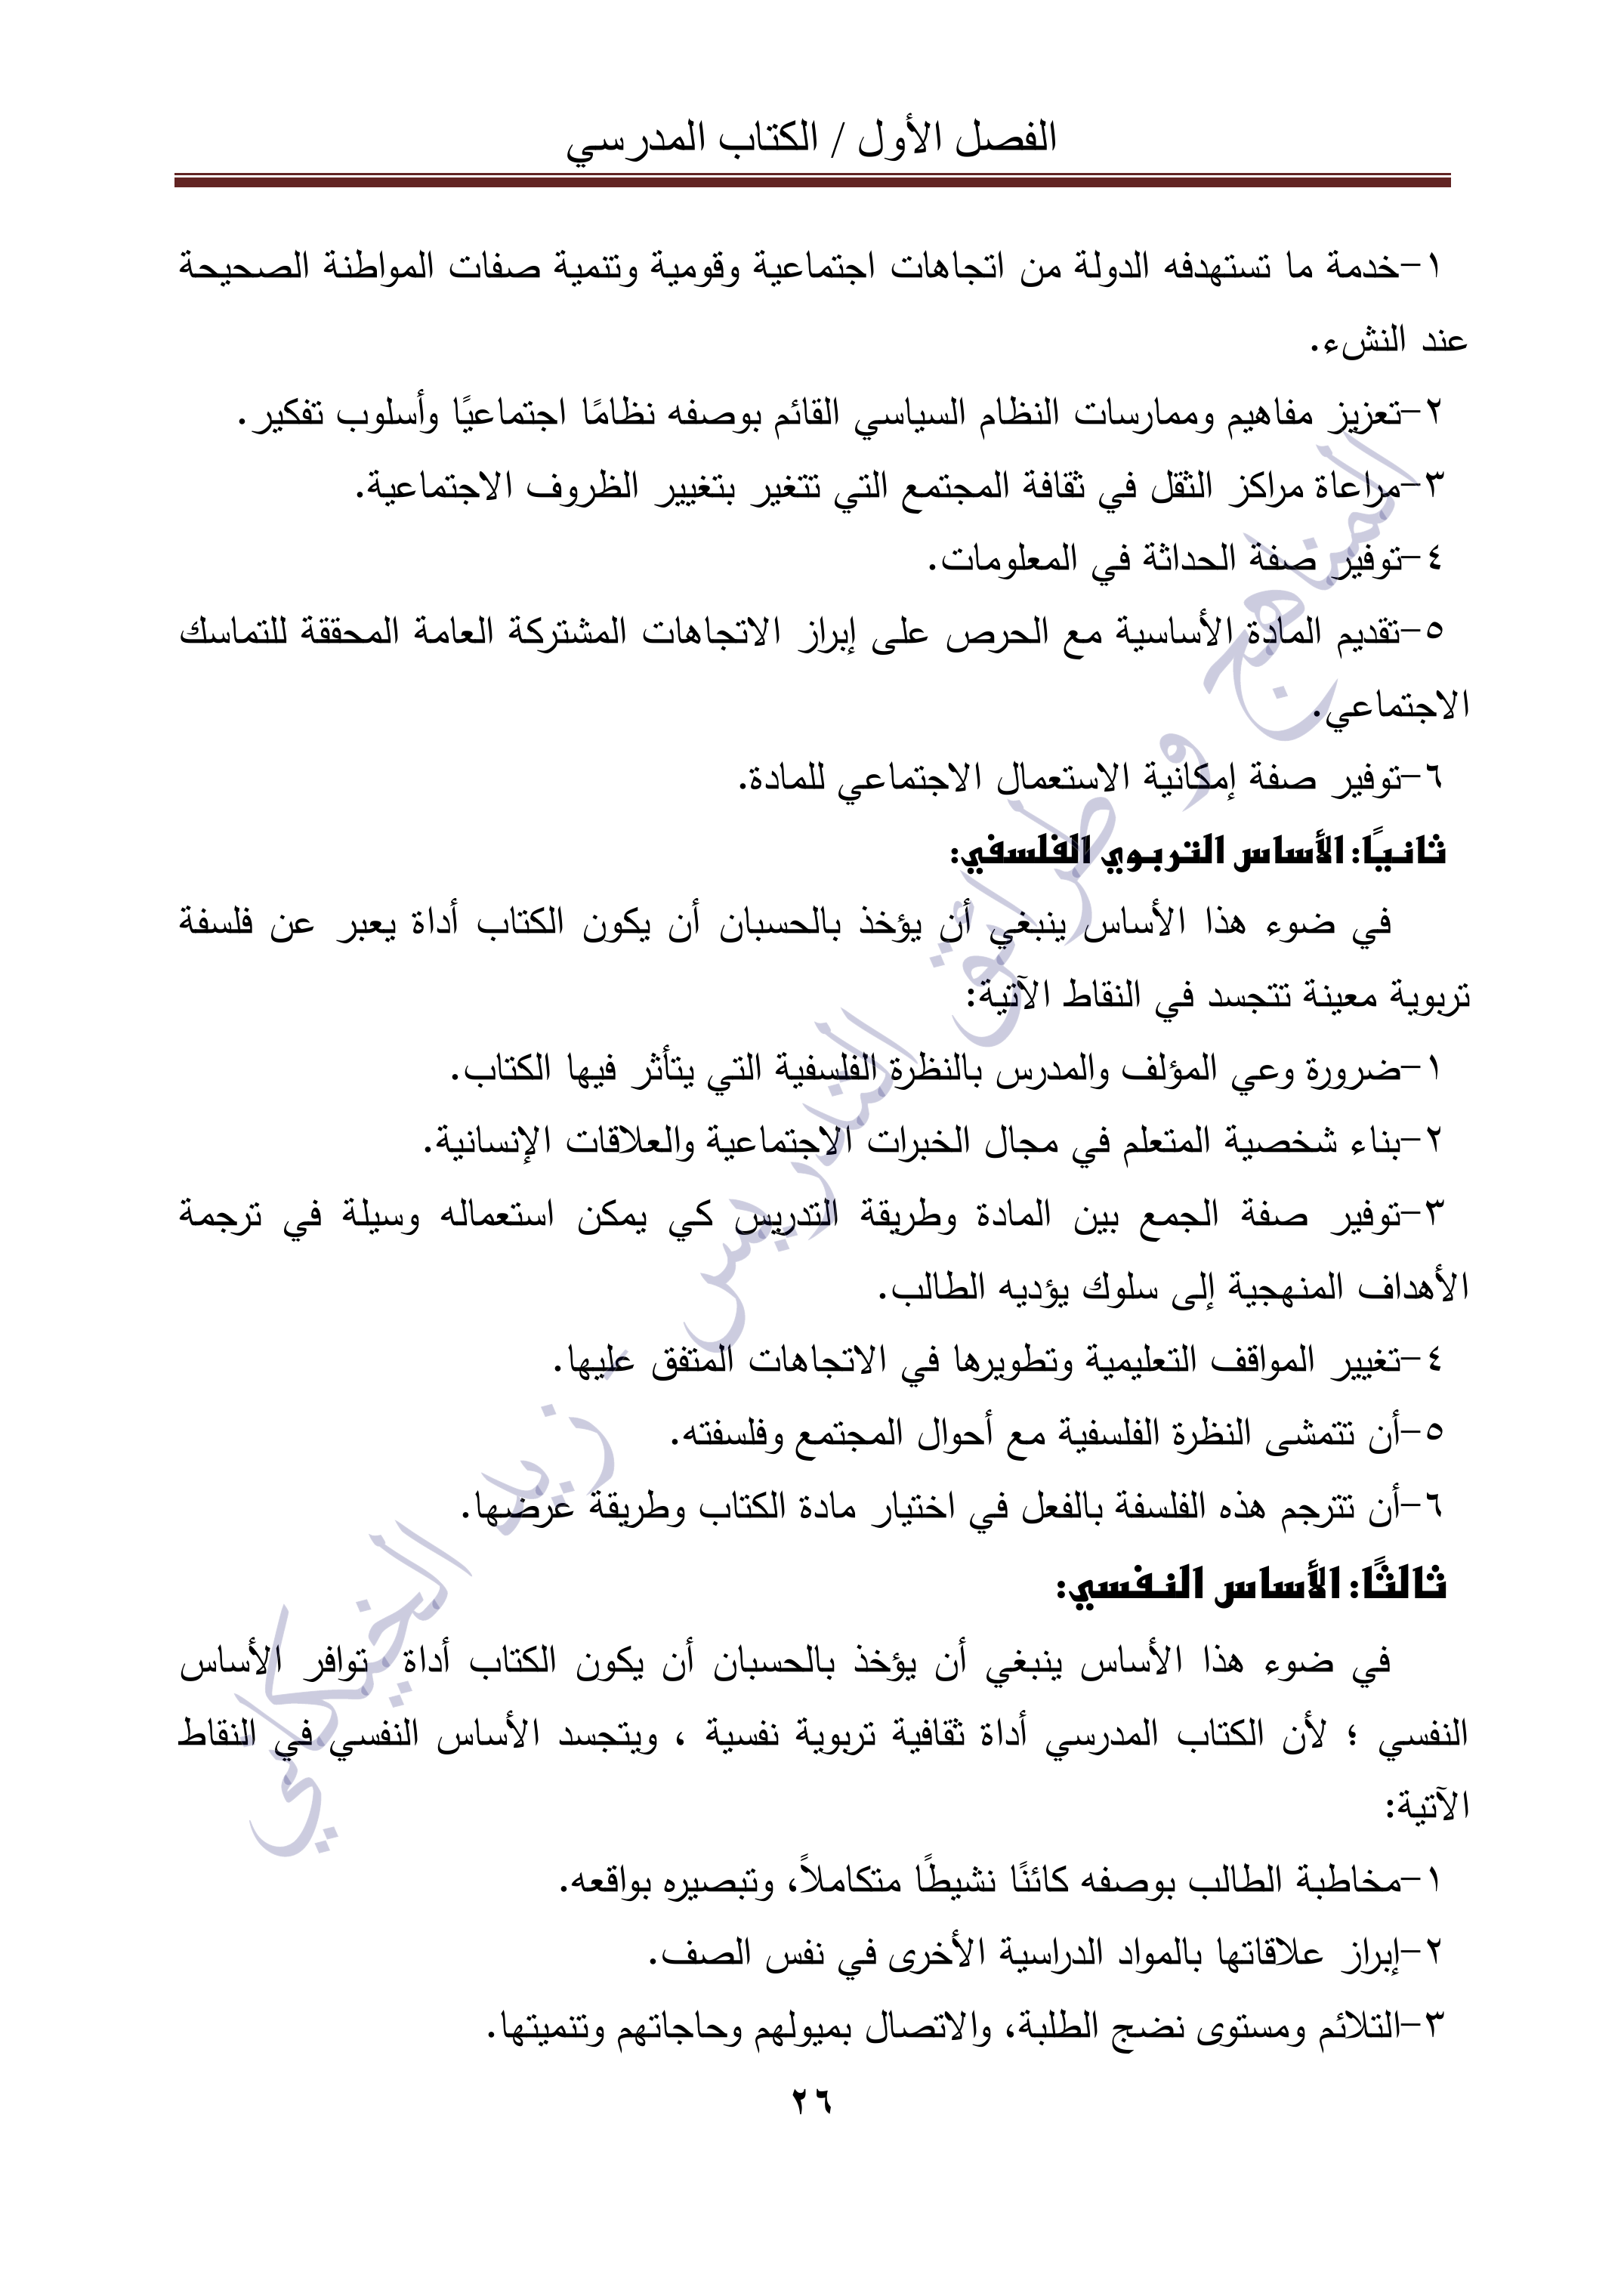 الفصل الأول / الكتاب المدرسي
١-خدمة ما تستهدفه الدولة من اتجاهات اجتماعية وقومية وتنمية صفات المواطنة الصحيحة
عند النشء.
٢-تعزيز مفاهيم وممارسات النظام السياسي القائم بوصفه نظامًا اجتماعيًا وأسلوب تفكير.
٣-مراعاة مراكز الثقل في ثقافة المجتمع التي تتغير بتغيير الظروف الاجتماعية.
٤-توفير صفة الحداثة في المعلومات.
٥-تقديم المادة الأساسية مع الحرص على إبراز الاتجاهات المشتركة العامة المحققة للتماسك
الاجتماعي.
٦-توفير صفة إمكانية الاستعمال الاجتماعي للمادة.
ثانيًا: الأساس التربوي الفلسفي:
في ضوء هذا الأساس ينبغي أن يؤخذ بالحسبان أن يكون الكتاب أداة يعبر عن فلسفة
تربوية معينة تتجسد في النقاط الآتية:
١-ضرورة وعي المؤلف والمدرس بالنظرة الفلسفية التي يتأثر فيها الكتاب.
٢-بناء شخصية المتعلم في مجال الخبرات الاجتماعية والعلاقات الإنسانية.
٣-توفير صفة الجمع بين المادة وطريقة التدريس كي يمكن استعماله وسيلة في ترجمة
الأهداف المنهجية إلى سلوك يؤديه الطالب.
٤-تغيير المواقف التعليمية وتطويرها في الاتجاهات المتفق عليها.
٥-أن تتمشى النظرة الفلسفية مع أحوال المجتمع وفلسفته.
٦-أن تترجم هذه الفلسفة بالفعل في اختيار مادة الكتاب وطريقة عرضها.
ثالثًا: الأساس النفسي:
في ضوء هذا الأساس ينبغي أن يؤخذ بالحسبان أن يكون الكتاب أداة توافر الأساس
النفسي ؛ لأن الكتاب المدرسي أداة ثقافية تربوية نفسية ، ويتجسد الأساس النفسي في النقاط
الآتية:
١-مخاطبة الطالب بوصفه كائنًا نشيطًا متكاملاً، وتبصيره بواقعه.
٢-إبراز علاقاتها بالمواد الدراسية الأخرى في نفس الصف.
٣-التلائم ومستوى نضج الطلبة، والاتصال بميولهم وحاجاتهم وتنميتها.
٢٦
المناهج و طرائق التدريس - زيد الخيكاني